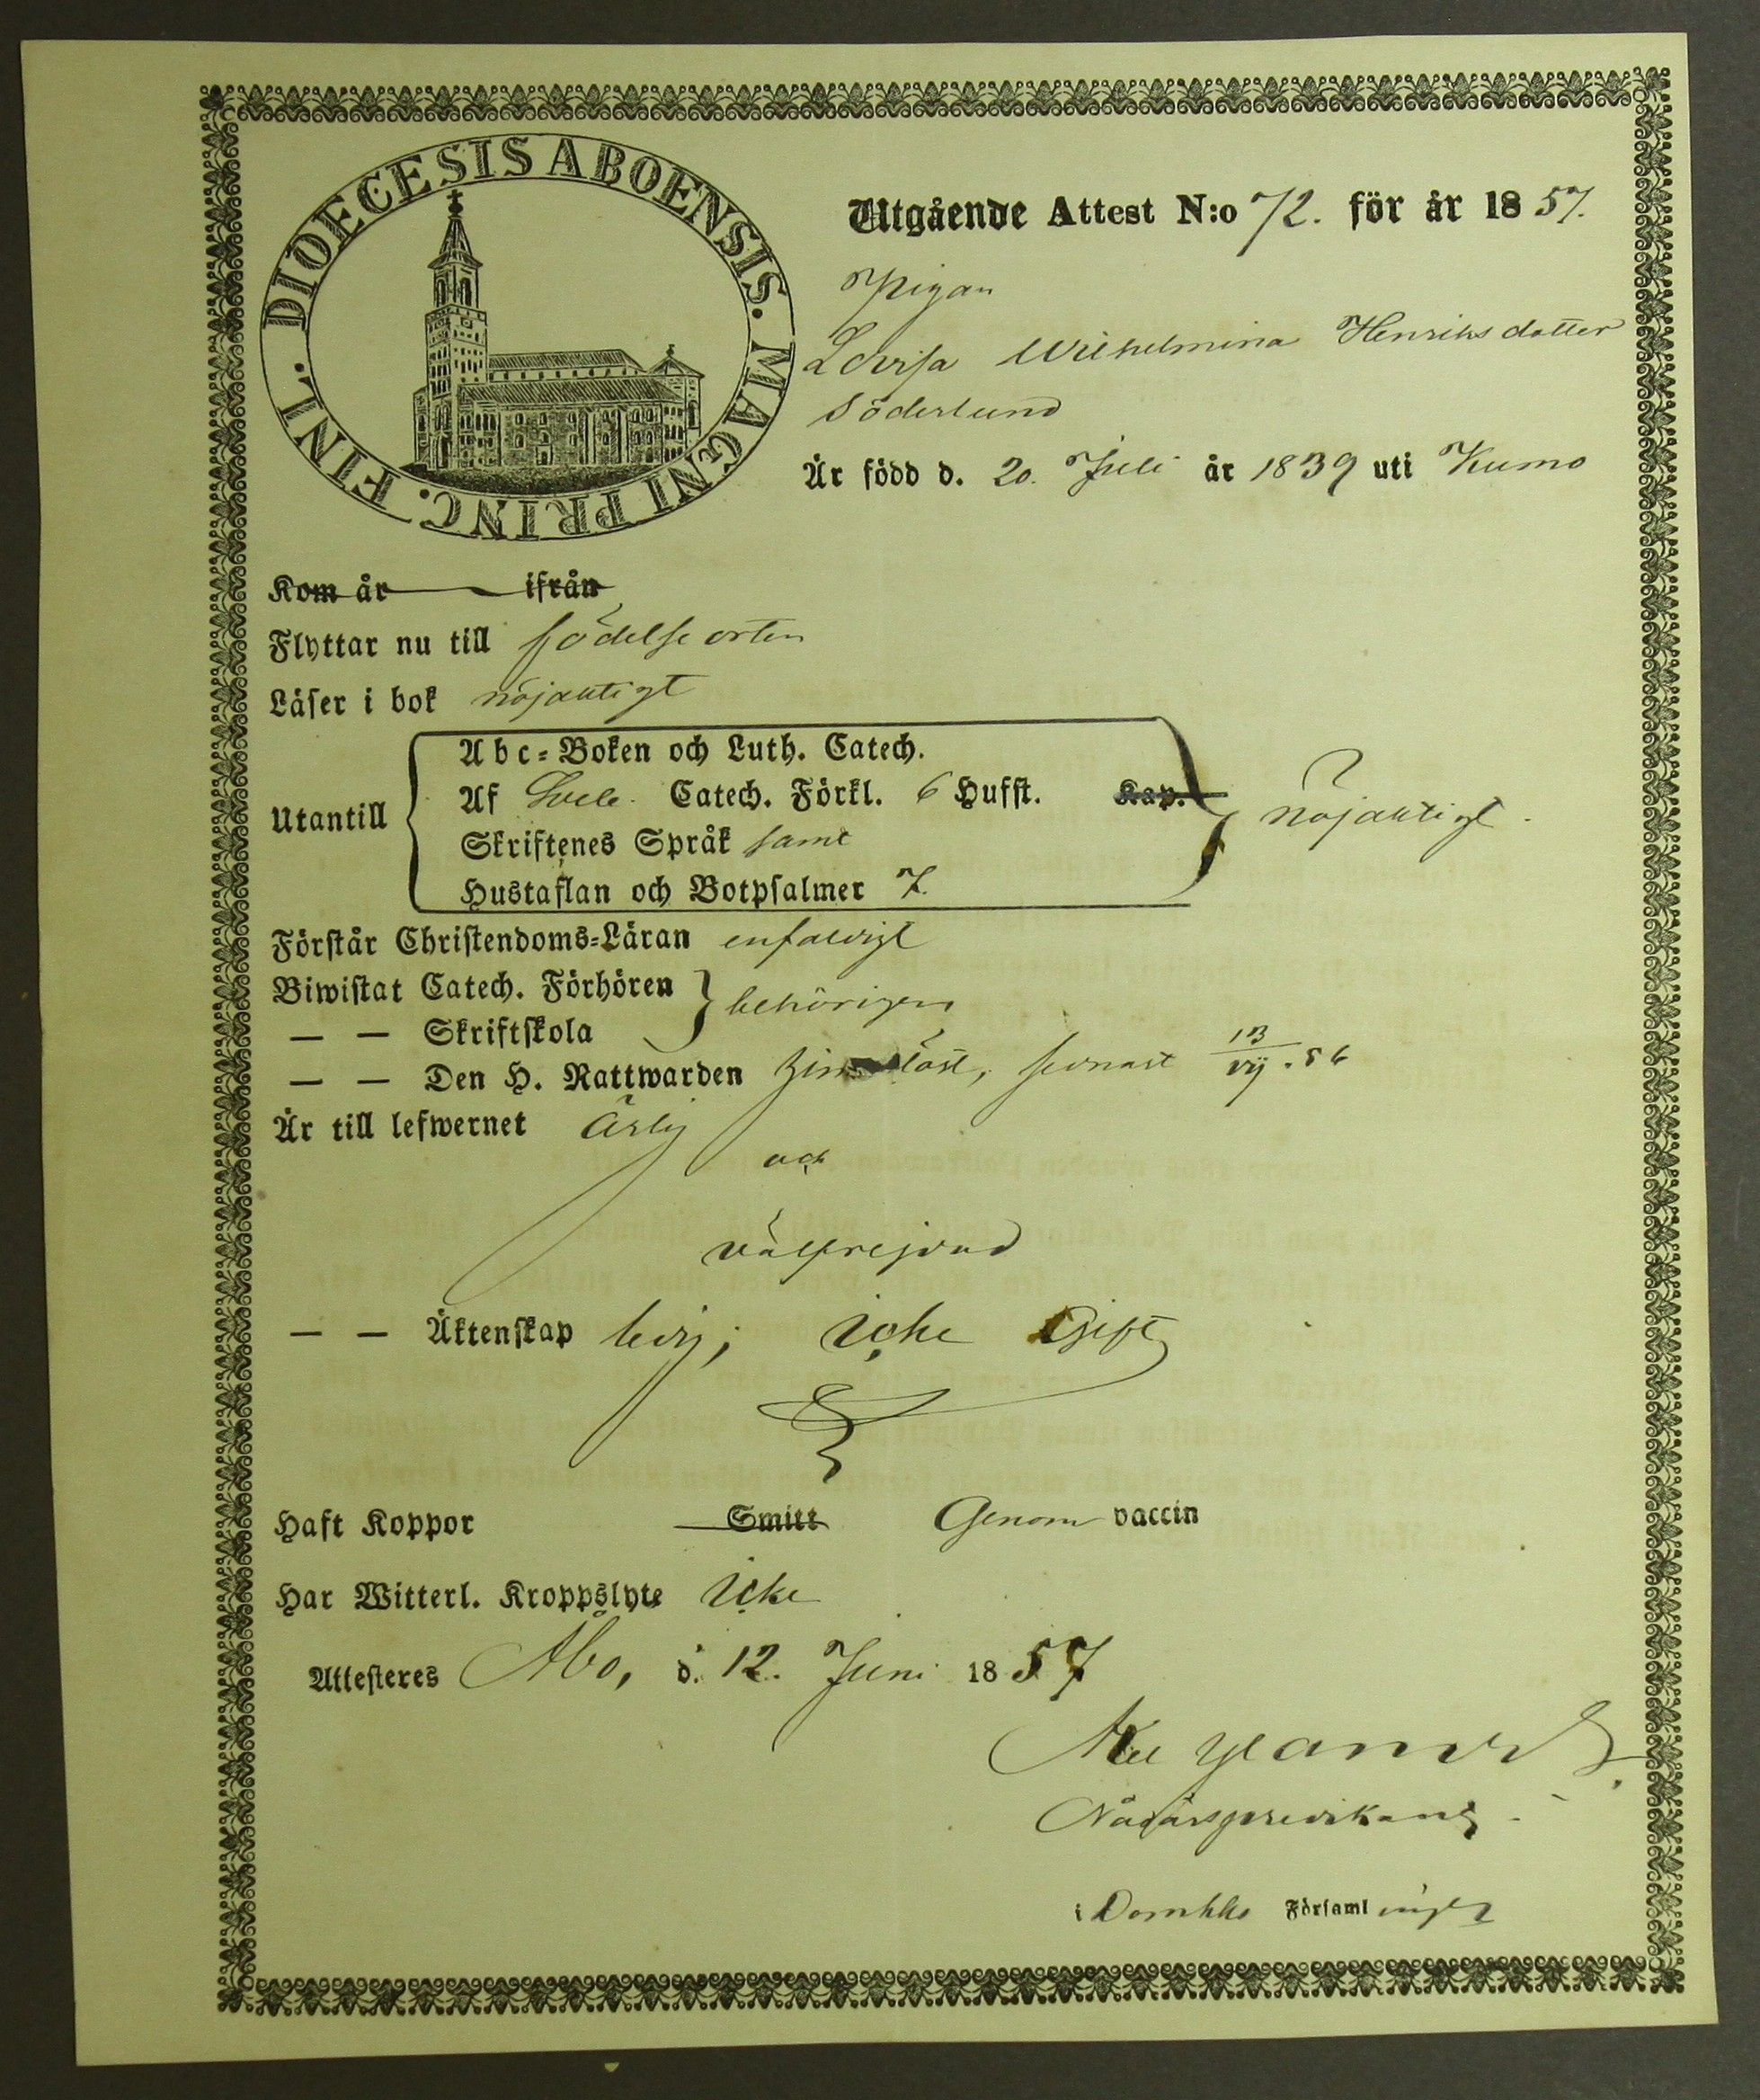 DIOECESIS ABOENSIS. MAGNI PRINC. FINL.
Utgående Attest N:o 72. för år 1857.
Pigan
Lovisa Wilhelmina Henriksdotter
Söderlund
Är född d. 20. Juli år 1839 uti Kumo
Kom år ifrån
Flyttar nu till födelseorten
Läser i bok nöjaktigt
Utantill
Abc-Boken och Luth. Catech.
Af Svebe. Catech. Förkl. 6 Hufst. Kap.
Skriftenes Språk samt
Hustaflan och Botpsalmer 7.
nöjaktigt.
Förstår Christendoms-Läran enfaldigt
Biwistat Catech. Förhören
— — Skriftskola
behörigen
— — Den H. Nattwarden sednast 13/vij. 56
Är till lefwernet Ärlig
och
välfrejdad
— — Äktenskap ledig; icke Gift
Haft Koppor Smitt Genom vaccin
Har Witterl. Kroppslyte Icke
Attesteres Åbo, d. 12. Juni 1857
Nådårspredikant
i Domkko Församlingen